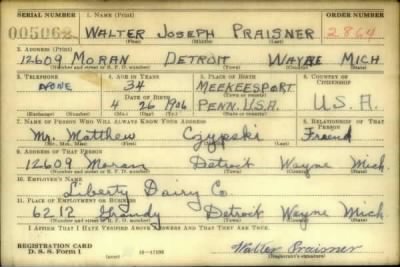 SERIAL NUMBER 1. NAME (Print) ORDER NUMBER
005062 WALTER JOSEPH PRAISNER 2864
(First) (Middle) (Last)
2. ADDRESS (Print)
12609 MORAN DETROIT WAYNE MICH
(Number and street or R. F. D. number) (Town) (County) (State)
3. TELEPHONE 4. AGE IN YEARS 5. PLACE OF BIRTH 6. COUNTRY OF CITIZENSHIP
NONE 34 MEEKEESPORT
DATE OF BIRTH (Town or county)
4 26 1906 PENN. U.S.A. U.S.A.
(Exchange) (Number) (Mo.) (Day) (Yr.) (State or country)
7. NAME OF PERSON WHO WILL ALWAYS KNOW YOUR ADDRESS 8. RELATIONSHIP OF THAT PERSON
Mr. Matthew Czypski Friend
(Mr., Mrs., Miss) (First) (Middle) (Last)
9. ADDRESS OF THAT PERSON
12609 Moran Detroit Wayne Mich.
(Number and street or R. F. D. number) (Town) (County) (State)
10. EMPLOYER'S NAME
Liberty Dairy Co.
11. PLACE OF EMPLOYMENT OR BUSINESS
6212 Grandy Detroit Wayne Mich.
(Number and street or R. F. D. number) (Town) (County) (State)
I AFFIRM THAT I HAVE VERIFIED ABOVE ANSWERS AND THAT THEY ARE TRUE.
REGISTRATION CARD
D. S. S. Form 1 (over) Walter Praisner
(Registrant's signature)